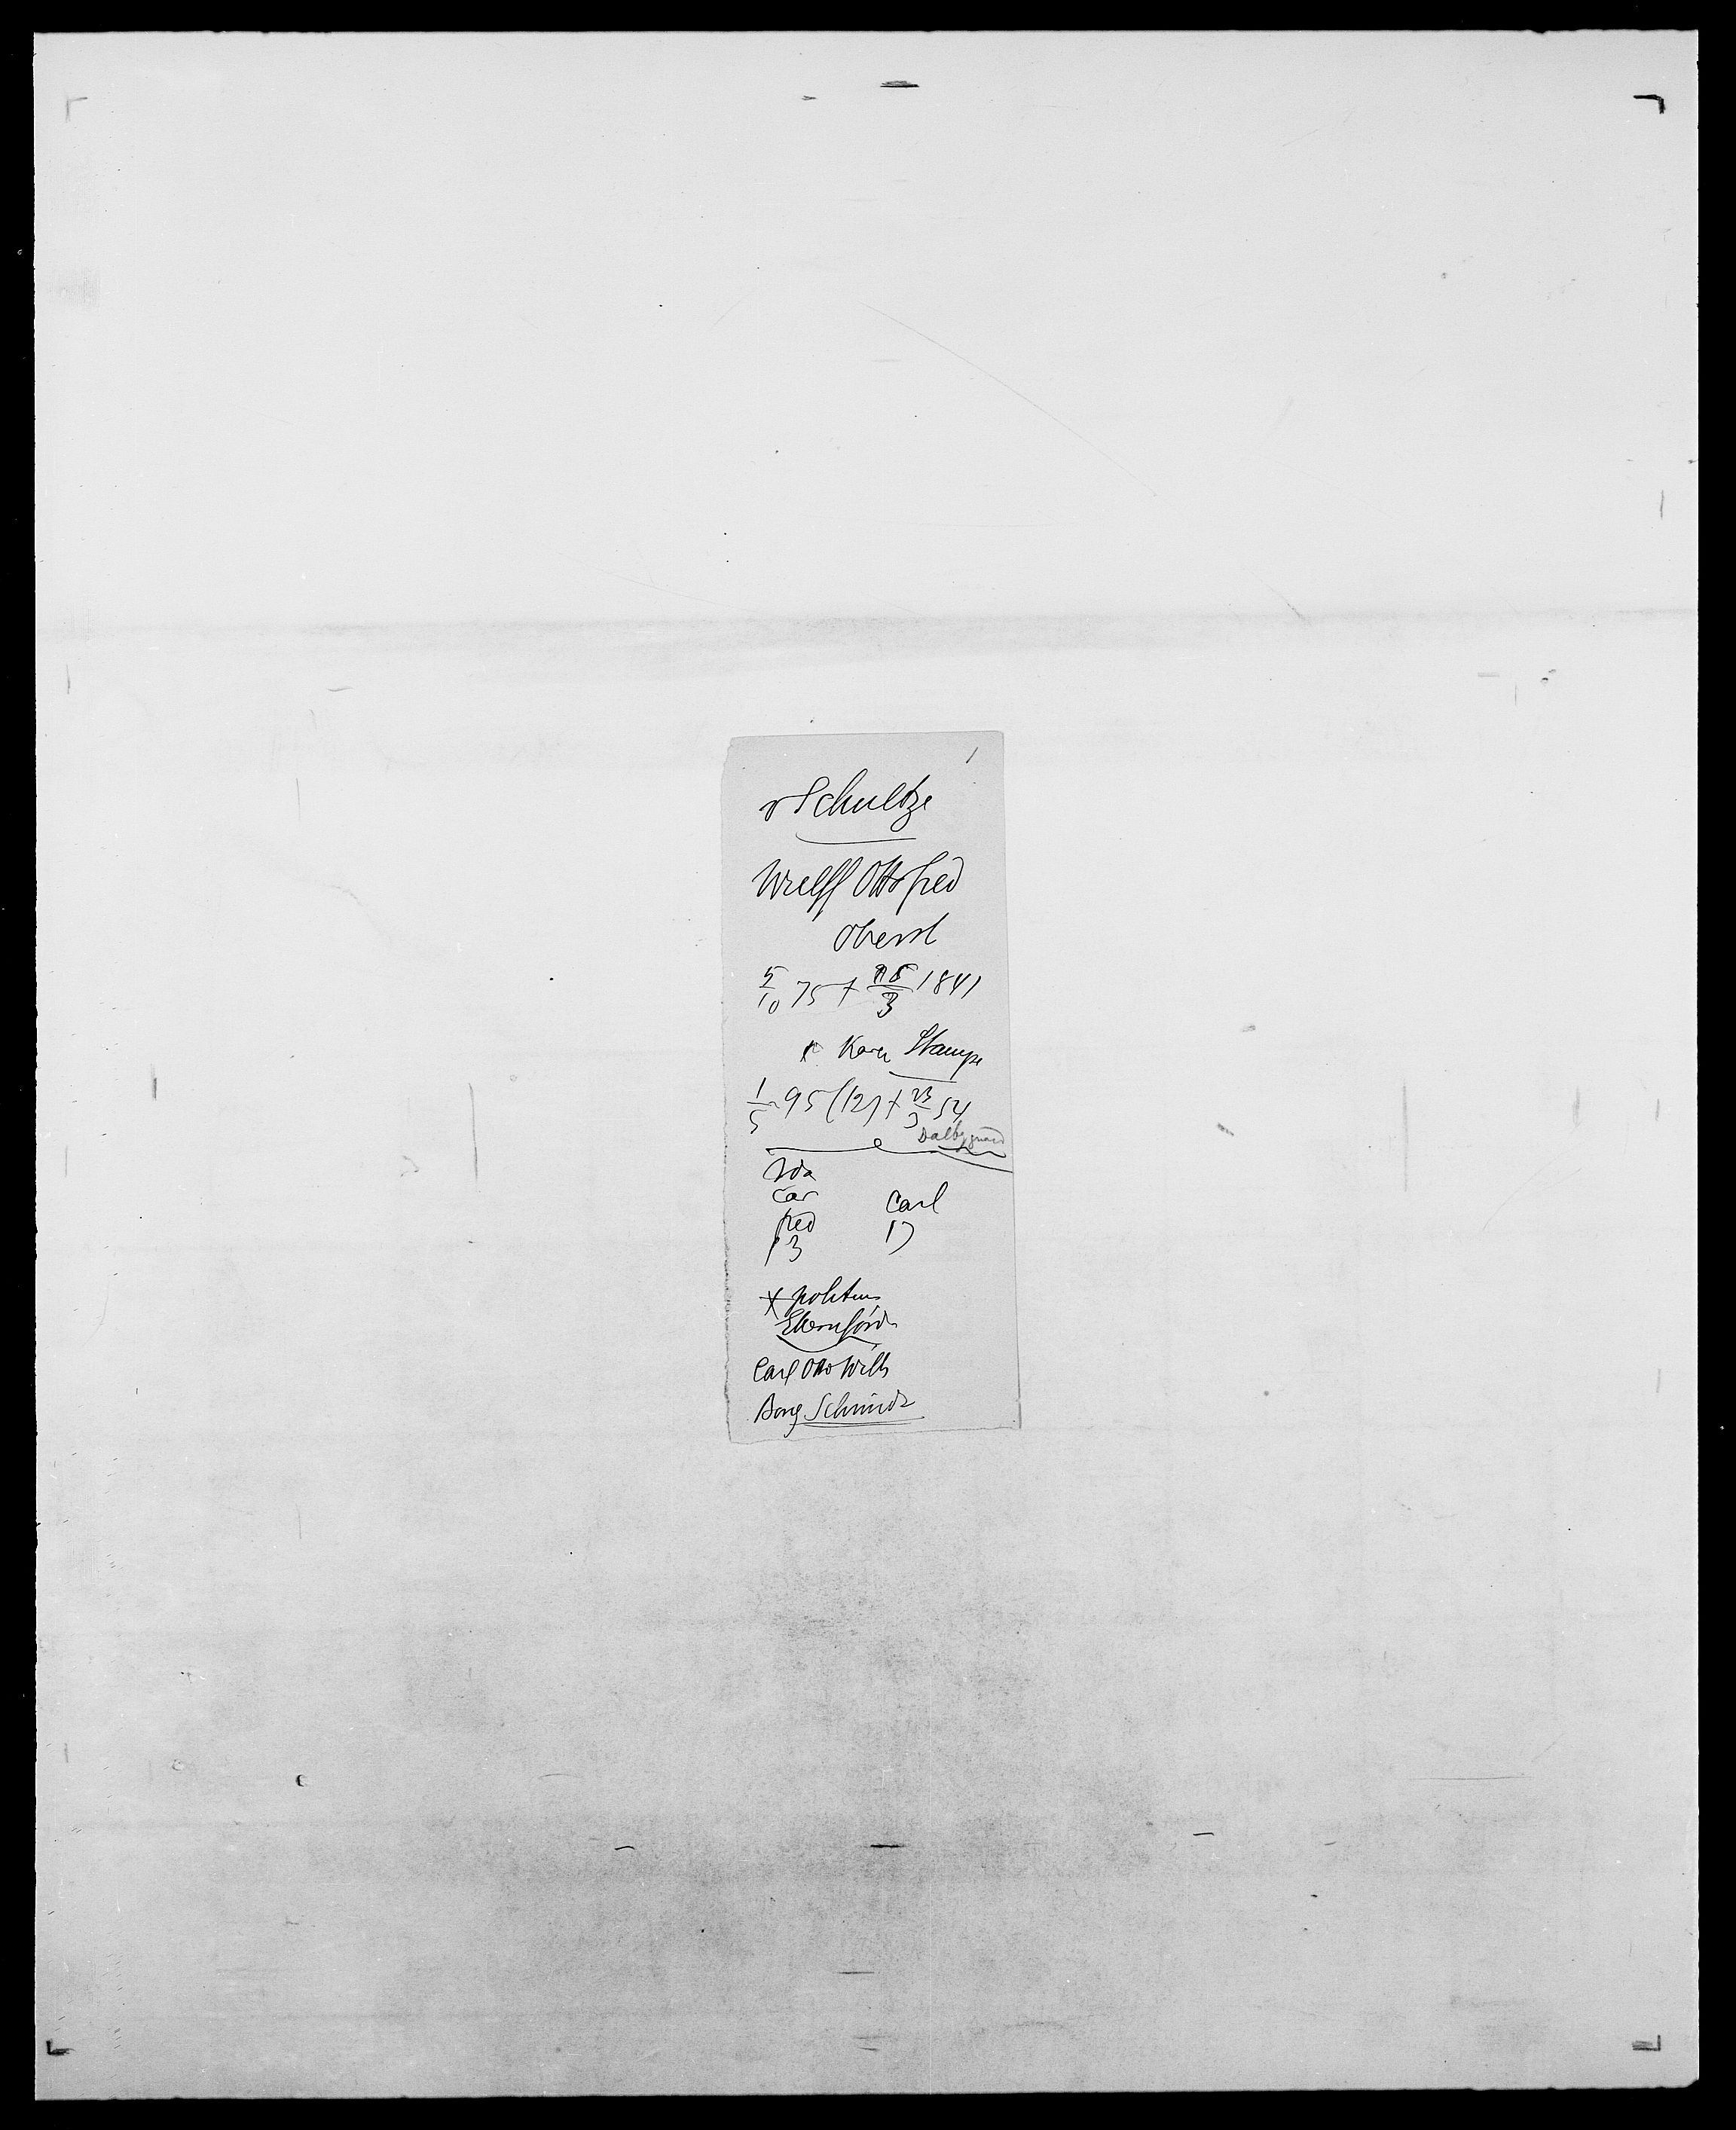 1
v Schultze
Wulff Otto Fred
Oberst
5/10 75 + 18/3 1841
Karen Stampe
1/5 95 (12) + 23/3 54
Dalbygaard
Ida
Car
Fred
13
Carl
17
x politm
Ekernførde
Carl Otto Wilh
Borg Schmidt